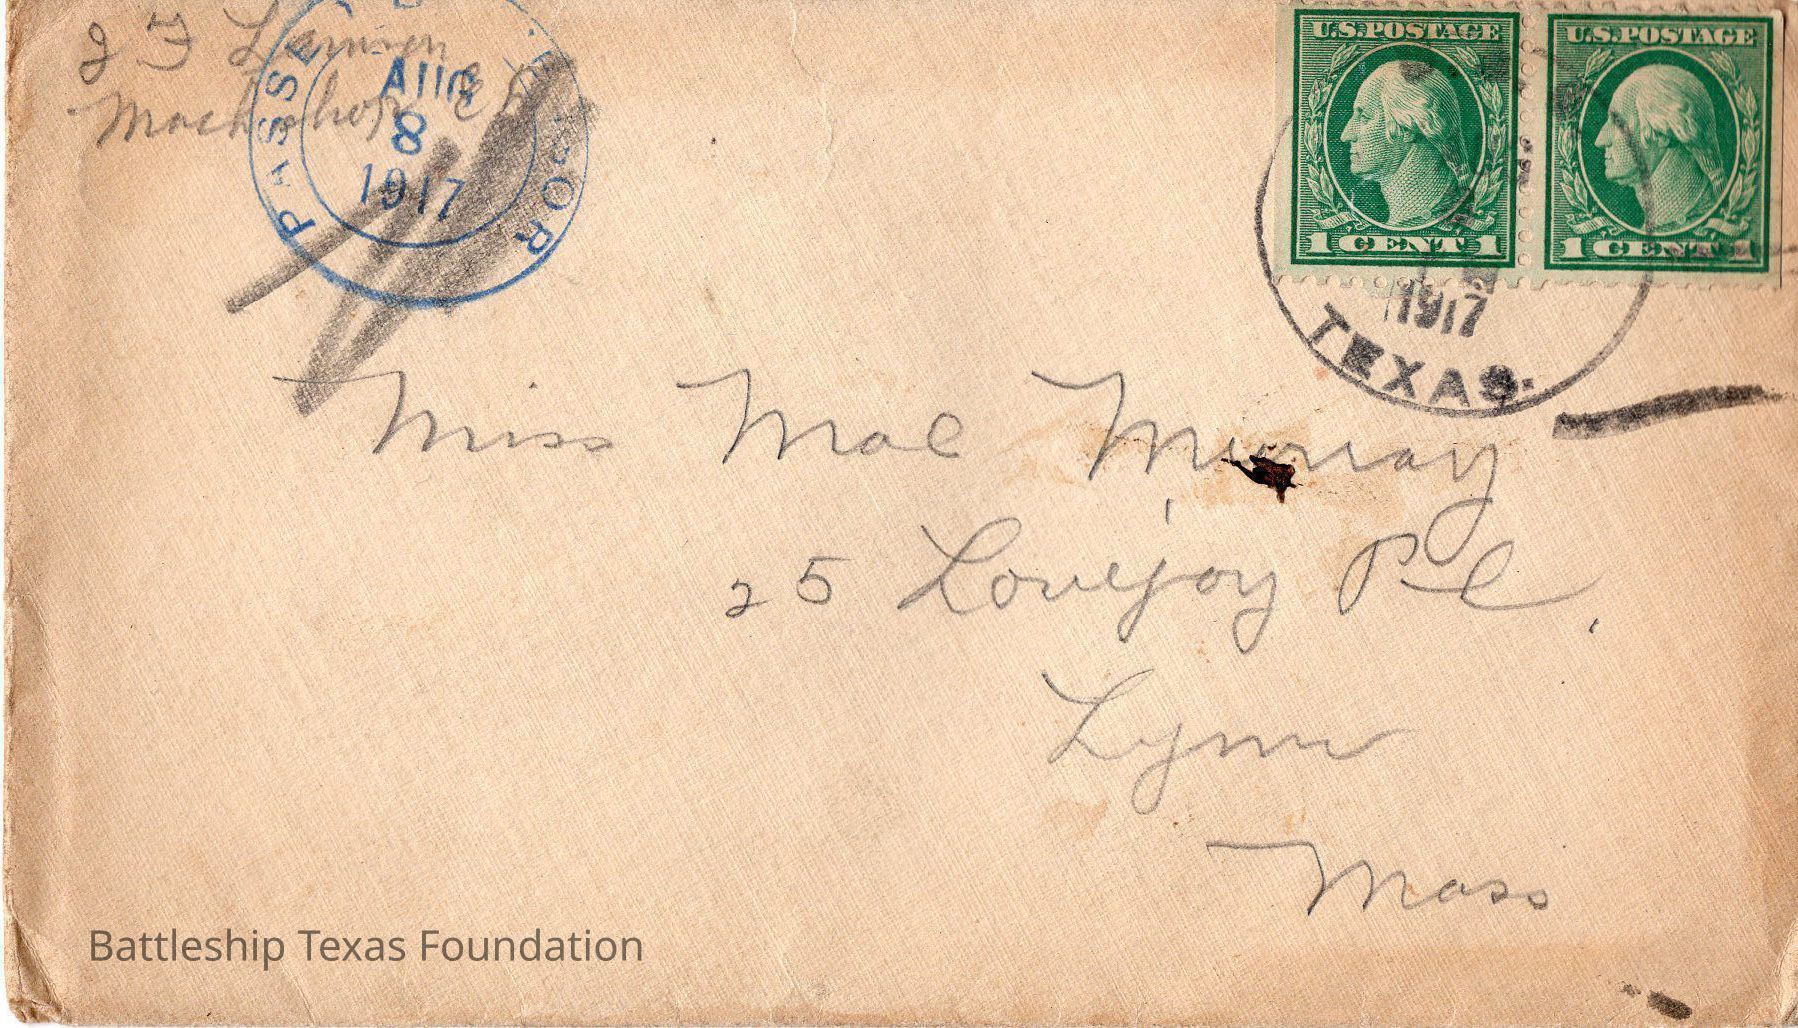 J F
Mach Shop
PASSED BY CENSOR
AUG
8
1917
U.S.POSTAGE
1 CENT 1
U.S.POSTAGE
1 CENT 1
1917
TEXAS.
Miss Mae Murray
25 Lovejoy Pl.
Lynn
Mass
Battleship Texas Foundation